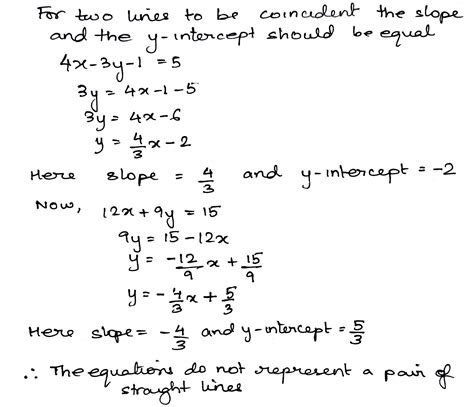 For two lines to be coincident the slope
and the y-intercept should be equal
4x-3y-1 = 5
3y = 4x-1-5
3y = 4x-6
y = 4/3 x - 2
Here slope = 4/3 and y-intercept = -2
Now, 12x + 9y = 15
9y = 15 - 12x
y = -12/9 x + 15/9
y = -4/3 x + 5/3
Here slope = -4/3 and y-intercept = 5/3
∴ The equations do not represent a pair of
straight lines